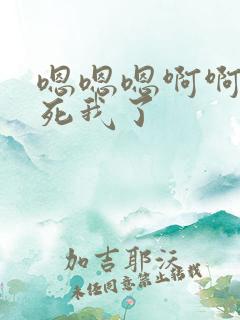 嗯嗯嗯啊啊
死我了
加吉耶沃
未经同意禁止转载